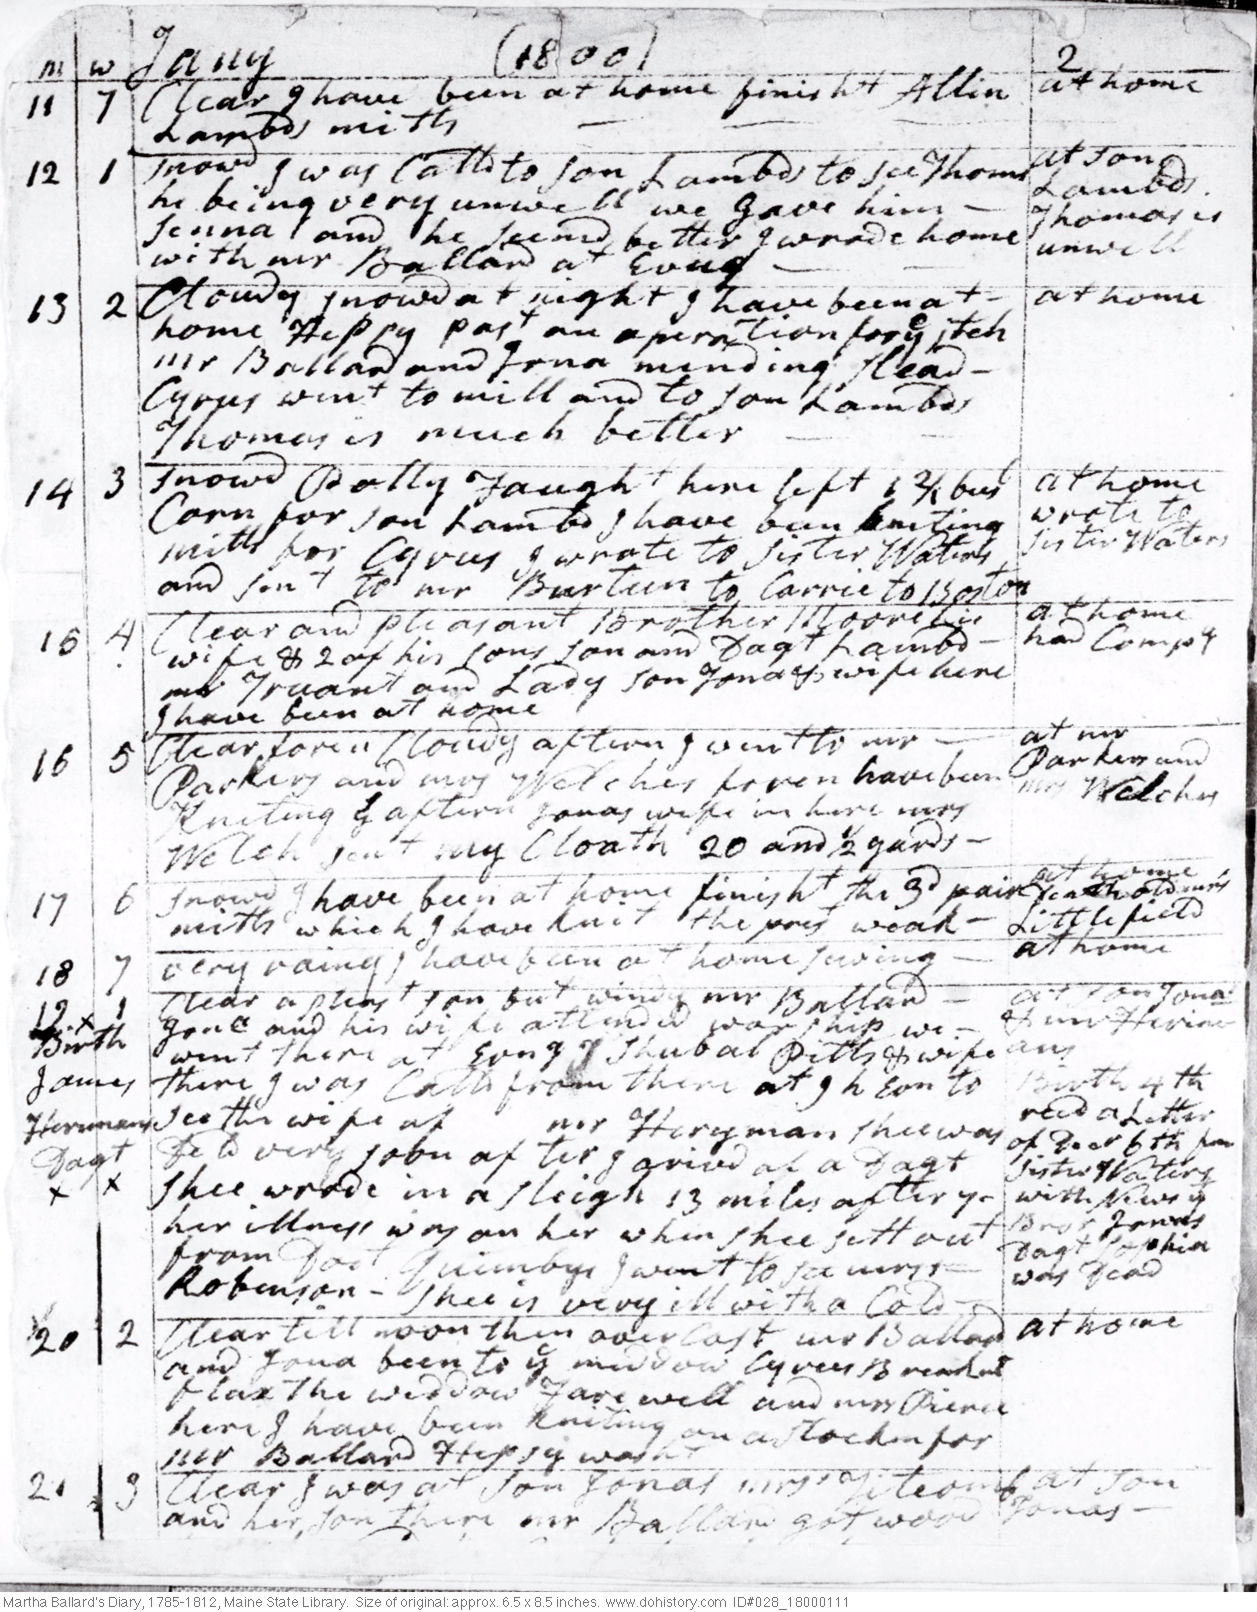 m w Jany (1800) 2
11 7 Clear I have been at home finisht Allin at home
Lambds mitts
12 1 snowd I was Calld to son Lambds to see Thoms at son
he being very unwell we gave him – Lambds.
senna and he seemd better I wrode home Thomas is
with mr Ballard at Evng – unwell
13 2 Cloudy snowd at night I have been at – at home
home Hepsy past an operation for ye itch
mr Ballard and Jona minding slead –
Cyrus went to mill and to son Lambds
Thomas is much better –
14 3 snowd Polly Faught here left 1 2/4 bus at home
Corn for son Lambd I have been kniting wrote to
mitts for Cyrus I wrote to sister Waters sister Waters
and sent to mr Burtun to Carrie to Boston
15 4 Clear and pleasant Brother Moore his at home
wife & 2 of his sons son and Dagt Lambd – had Compy
mr Truant and Lady son Jona & wife here
I have been at home
16 5 Clear foren Cloudy aftern I went to mr – at mr
Parkers and mrs Welches foren have been Parkers and
Kniting ye aftern Jonas wife in here mrs mrs Welches
Welch sent my Cloath 20 and 1/2 yards –
17 6 snowd I have been at home finisht the 3d pair at home
mitts which I have knit the pres weak – Death old mrs
Littlefield
18 7 very rainy I have been at home sewing – at home
19 x 1 Clear a pleast son but windy mr Ballard – at son Jona
Birth Jona and his wife attended worship we – & mr Herim
went there at Evng Shubal Pitts & wife ans
James there I was Calld from there at 9 h Evn to Birth 4th
Herrimans see the wife of mr Heryman shee was recd a Letter
Dagt Deld very soon after I arivd of a Dagt of Decr 6th from
x x shee wrode in a sleigh 13 miles after y – sister Waters
her illness was on her when shee sett out with News of
from Doct Quimbys I went to see mrss – Bror Jonas
Robenson – shee is very ill with a Cold – Dagt Sophia
was Dead
20 2 Clear till noon then over Cast mr Ballard at home
and Jona been to ye meddow Cyrus Breakt
flax the widdow Farewell and mrs Pierce
here I have been kniting on a stocken for
mr Ballard Hepsy washt
21 3 Clear I was at son Jonas mrss Titcomb at son
and her son there mr Ballard got wood Jonas –
Martha Ballard's Diary, 1785-1812, Maine State Library. Size of original: approx. 6.5 x 8.5 inches. www.dohistory.com ID#028_18000111